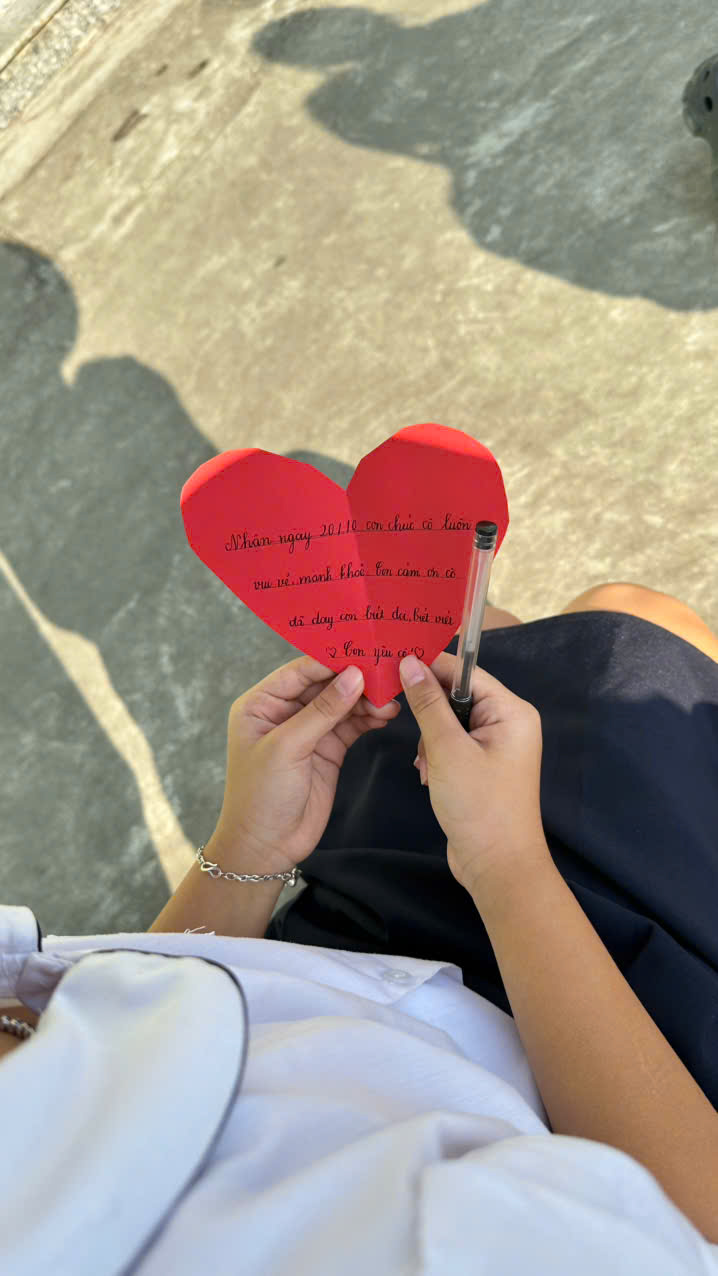 Nhận ngày 20/10 con chúc cô luôn
vui vẻ, mạnh khoẻ. Con cảm ơn cô
đã dạy con biết đọc, biết viết
♡ Con yêu cô!♡